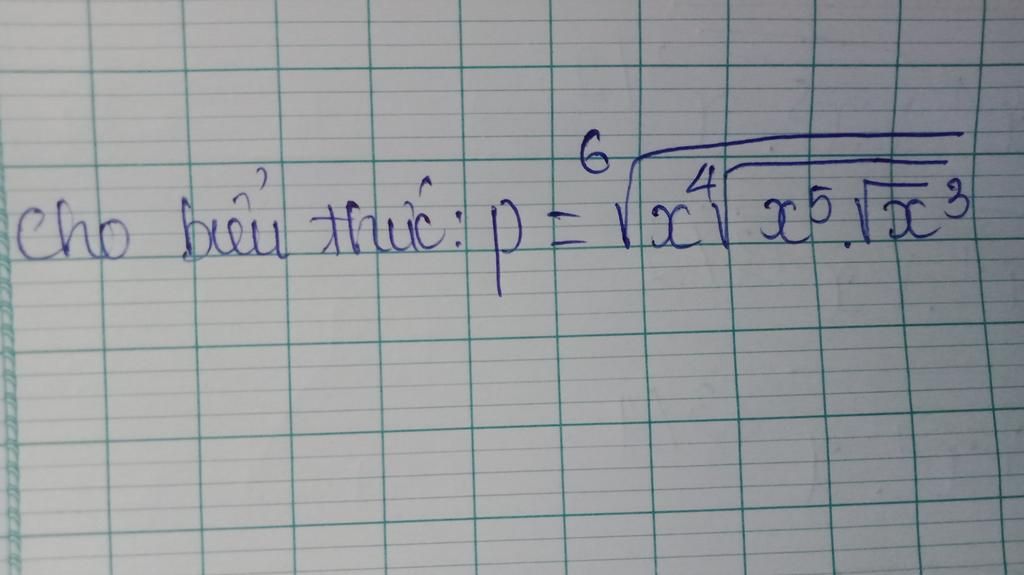 Cho biểu thức: p = ⁶√(x ⁴√(x⁵.√x³))